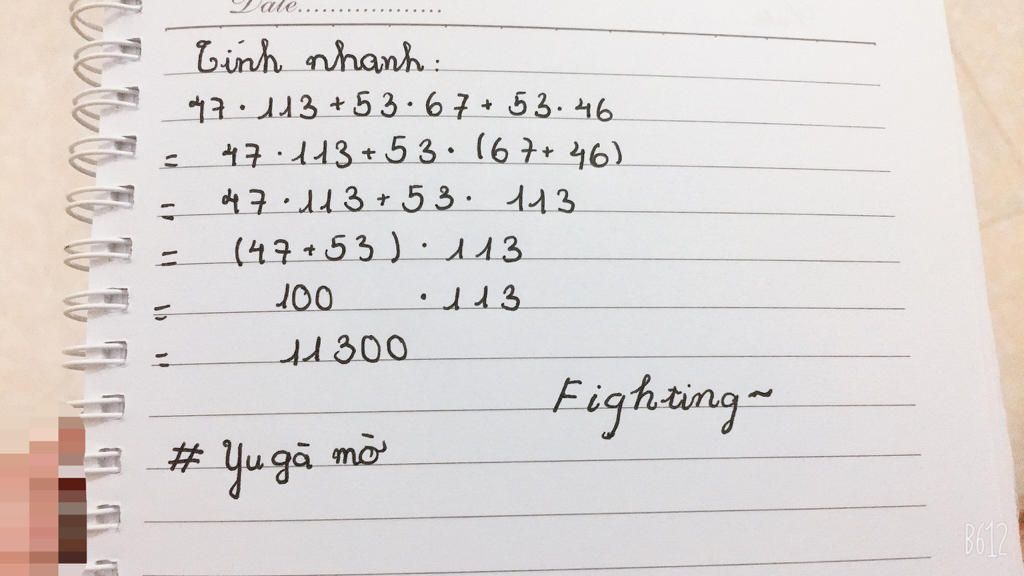 Date..................
Tính nhanh:
47 · 113 + 53 · 67 + 53 · 46
= 47 · 113 + 53 · (67 + 46)
= 47 · 113 + 53 · 113
= (47 + 53) · 113
= 100 · 113
= 11300
Fighting~
# Yu gà mờ
B612